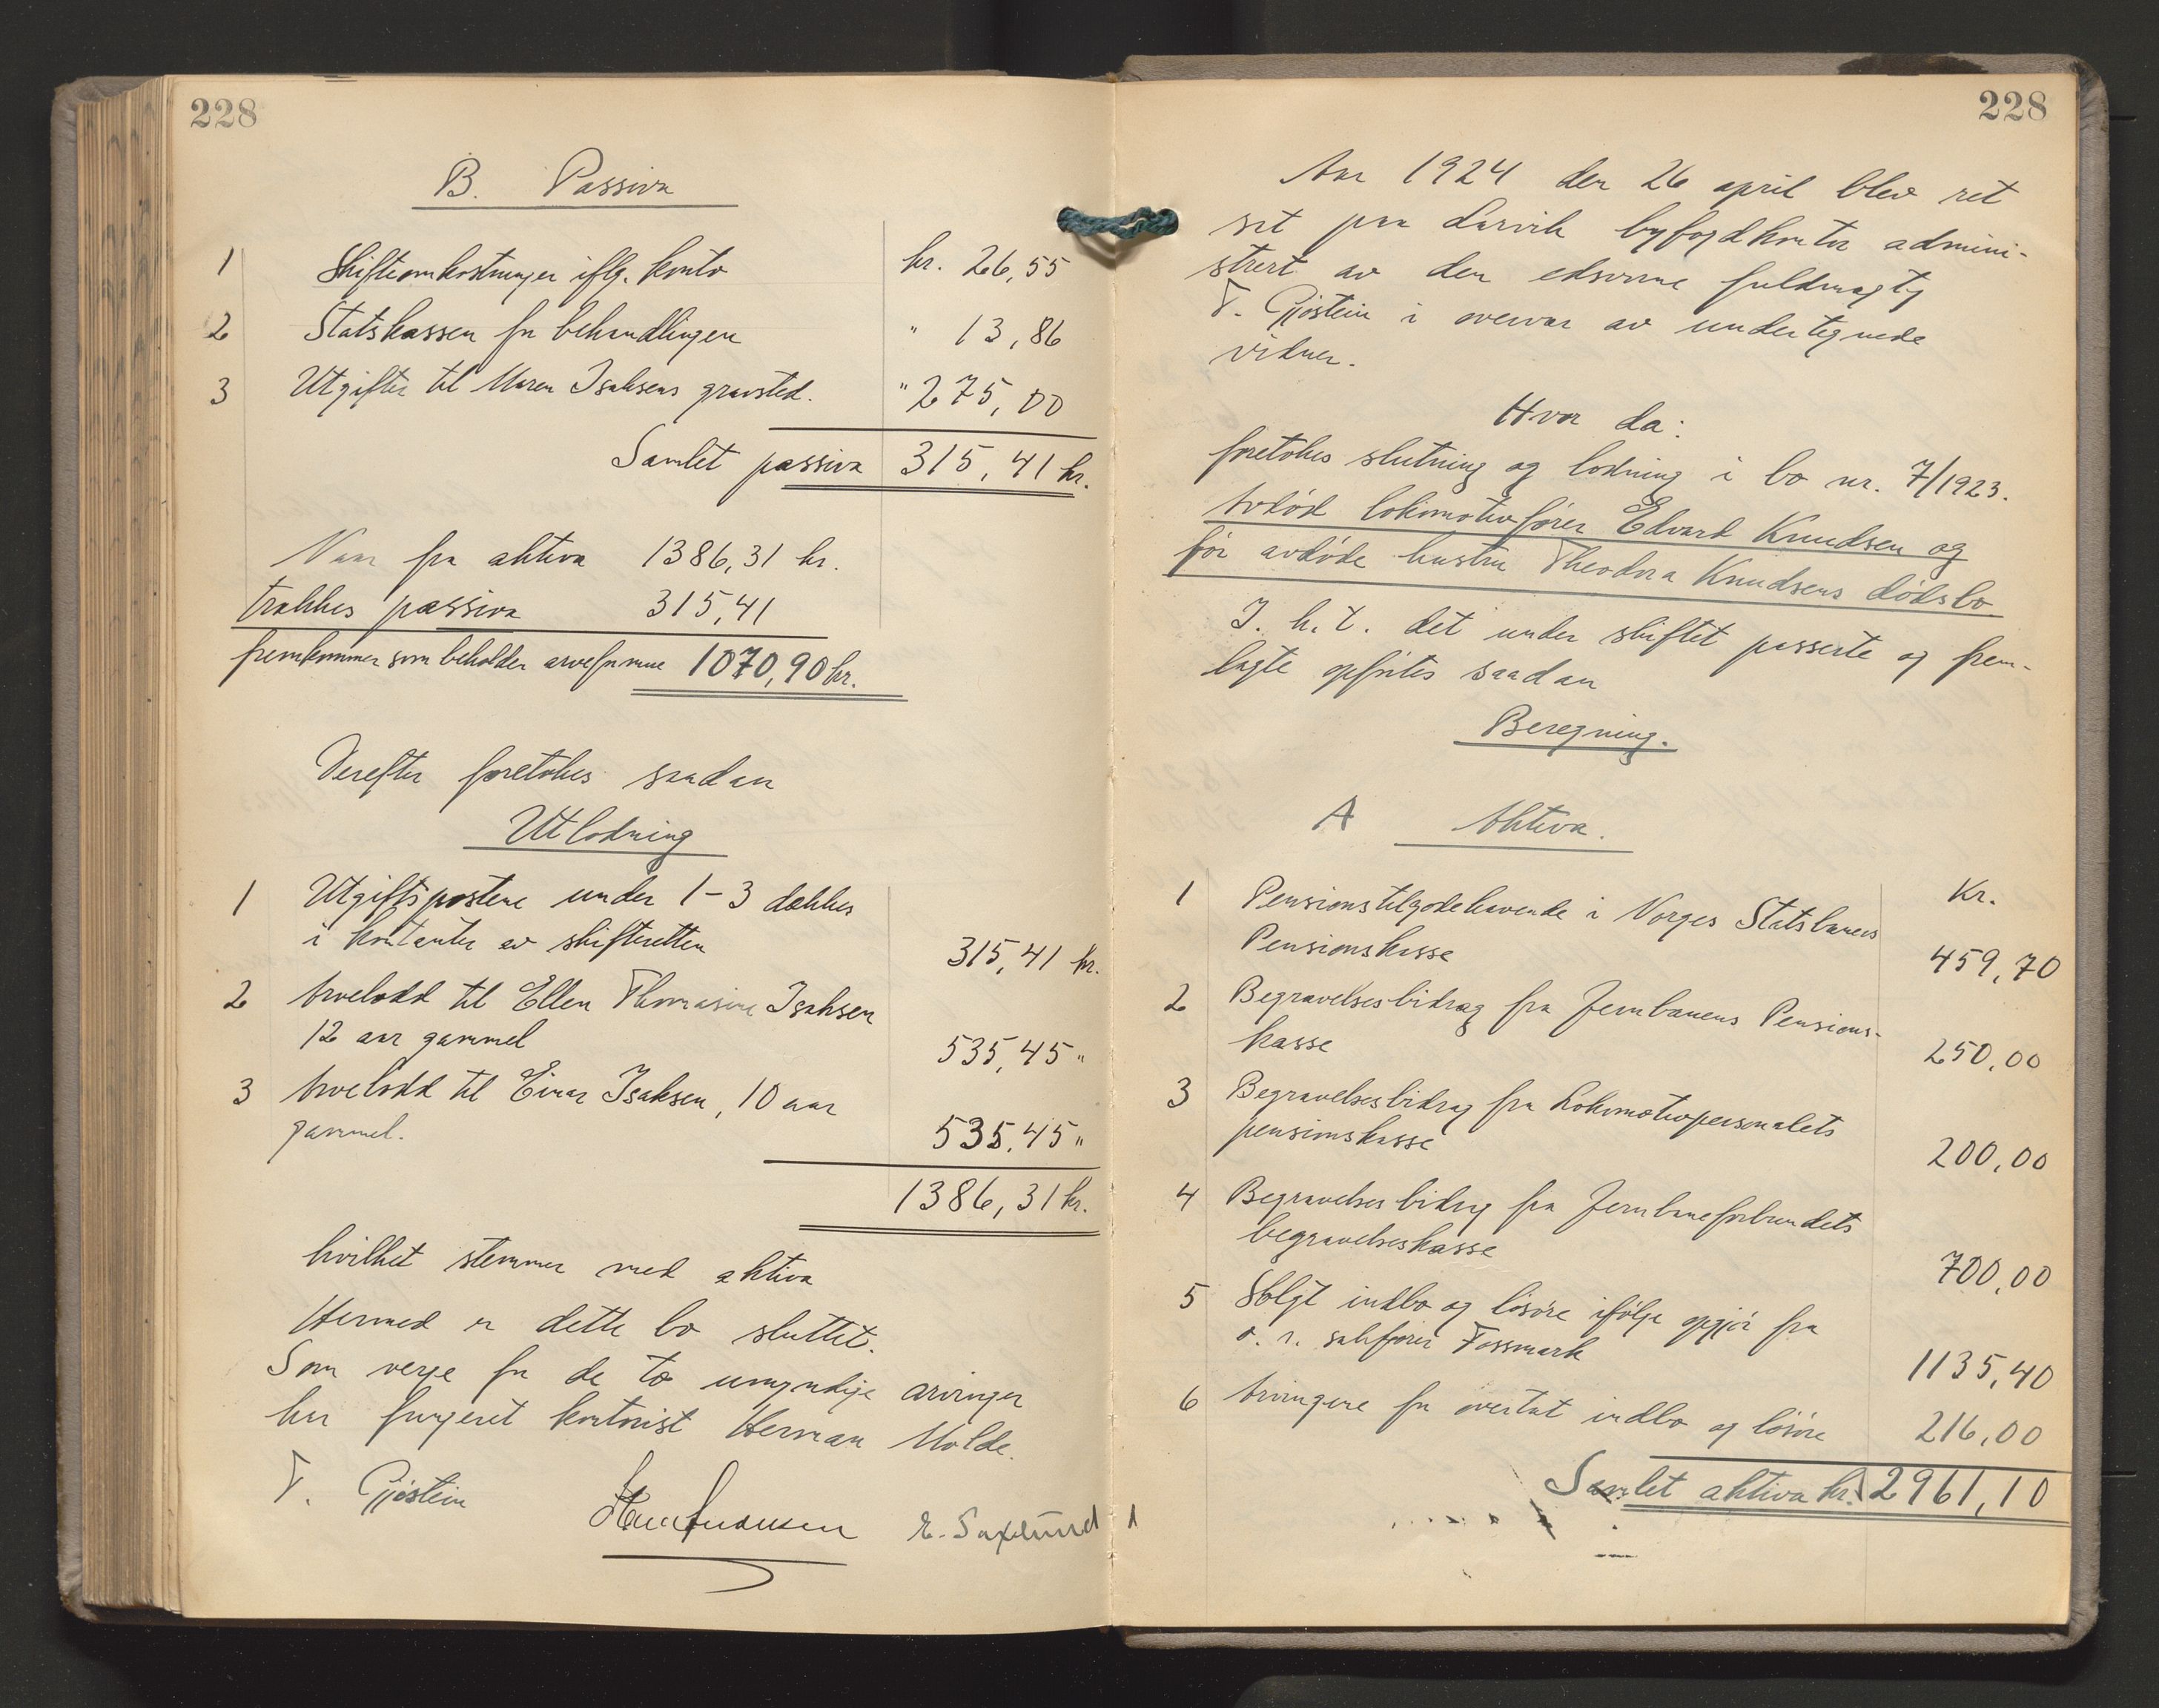 228
B. Passiva
1 Skifteomkostninger iflg. konto kr. 26,55
2 Statskassen for behandlingen " 13,86
3 Utgifter til Maren Isaksens gravsted. " 275,00
Samlet passiva 315,41 kr.
Naar fra aktiva 1386,31 kr.
trækkes passiva 315,41
fremkommer som beholden arveformue 1070,90 kr.
Derefter foretokes saadan
Utlodning
1 Utgiftspostene under 1-3 dækkes
i kontanter av skifteretten 315,41 kr.
2 Arvelodd til Ellen Thomasine Isaksen
12 aar gammel 535,45 "
3 Arvelodd til Einar Isaksen, 10 aar
gammel. 535,45 "
1386,31 kr.
hvilket stemmer med aktiva
Hermed er dette bo sluttet.
Som verge for de to umyndige arvinger
har fungeret kontorist Herman Molde.
T. Gjøstein E. Saxlund
228
Aar 1924 den 26 april blev ret
sat paa Larvik byfogdkontor admini-
strert av den edsvorne fuldmægtig
T. Gjøstein i overvær av undertegnede
vidner.
Hvor da:
foretokes slutning og lodning i bo nr. 7/1923.
Avdød lokomotivfører Edvard Knudsen og
før avdøde hustru Theodora Knudsens dødsbo
I. h. t. det under skiftet passerte og frem-
lagte opførtes saadan
Beregning.
A Aktiva.
Kr.
1 Pensionstilgodehavende i Norges Statsbaners
Pensionskasse 459,70
2 Begravelsesbidrag fra Jernbanens Pensions-
kasse 250,00
3 Begravelsesbidrag fra Lokomotivpersonalets
pensionskasse 200,00
4 Begravelsesbidrag fra Jernbaneforbundets
begravelseskasse 700,00
5 Solgt indbo og løsøre ifølge opgjør fra
o. r. sakfører Fossmark 1135,40
6 Arvingene for overtat indbo og løsøre 216,00
Samlet aktiva kr. 2961,10